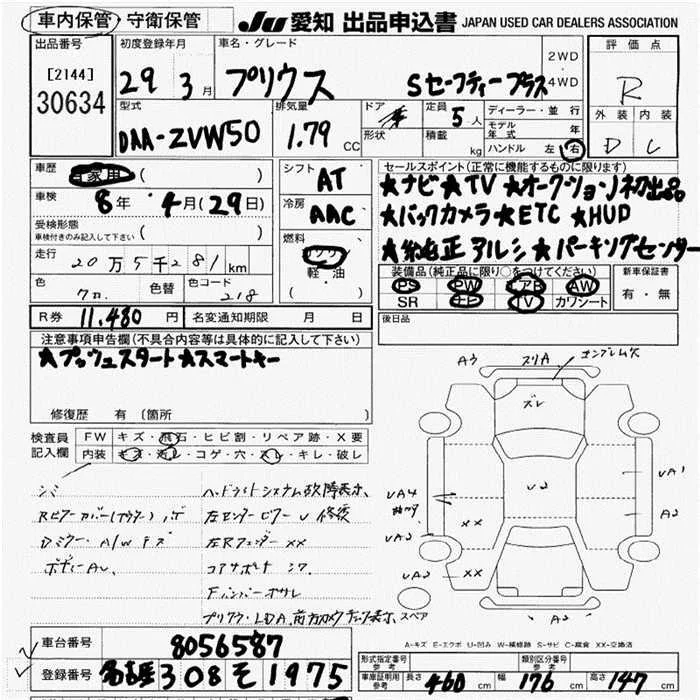 車内保管・守衛保管 JU 愛知 出品申込書 JAPAN USED CAR DEALERS ASSOCIATION
出品番号 初度登録年月 車名・グレード 評価点
[2144] 29 3月 プリウス Sセーフティープラス 2WD・4WD R
30634 型式 排気量 ドア 定員 5人 ディーラー・並行 外装 内装
DAA-ZVW50 1.79 CC 形状 積載 kg モデル年式 年 D C
ハンドル 左 右
車歴 自家用 ( ) シフト AT セールスポイント(正常に機能するものに限ります)
車検 8年 4月(29日) 冷房 AAC ★ナビ★TV ★オークション初出品
受検形態 車検付きのみ記入して下さい ( ) 燃料 ★バックカメラ★ETC ★HUD
走行 20万5千281km ガソリン 軽・油 ( ) ★純正アルミ★パーキングセンサー
色 クロ 色替 色コード 218 装備品(純正品に限り○をつけてください) 新車保証書
PS PW エアB AW 有・無
SR ナビ TV カワシート
R券 11,480円 名変通知期限 月 日 後日品
注意事項申告欄(不具合内容等は具体的に記入して下さい)
★プッシュスタート★スマートキー
修復歴 有 (箇所 )
検査員記入欄 FW キズ・飛石・ヒビ割・リペア跡・X要
内装 キズ・汚レ・コゲ・穴・スレ・キレ・破レ
A3 スリA エンブレムケ
ズレ
U2
UA1
UA4
XX A2
UA2
UA2 XX
A2
シミ ヘッドライトシステム故障表示、
左センターピラーU 修復
Dミラー・A/Wキズ 左Rフェンダー XX
ボディーAU、 コアサポート シワ
スペア
A-キズ E-エクボ U-凹み W-補修跡 S-サビ C-腐食 XX-交換済
車台番号 8056587
登録番号 名古屋 308 そ 1975
形式指定番号 参考 類別区分番号 参考
車庫証明用 参考 長さ 460 cm 幅 176 cm 高さ 147 cm